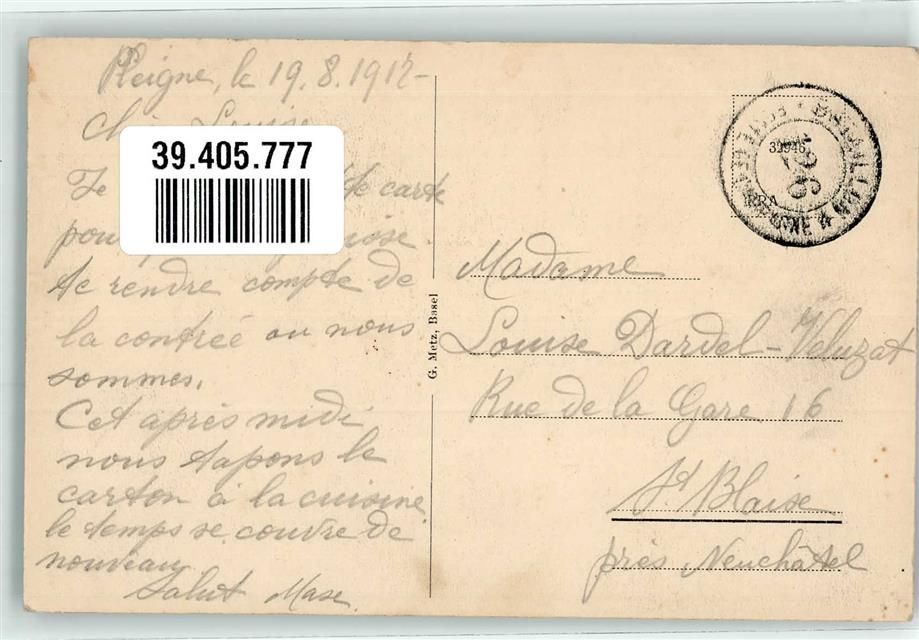 Pleigne, le 19.8.1917-
Louise
39.405.777
Je carte
pour
te rendre compte de
la contreé ou nous
sommes.
Cet aprés midi
nous tapons le
carton à la cuisine
le temps se couvre de
nouveau
Salut Max.
G. Metz, Basel
126
32946
Madame
Louise Dardel-Veluzat
Rue de la Gare 16
St Blaise
près Neuchâtel